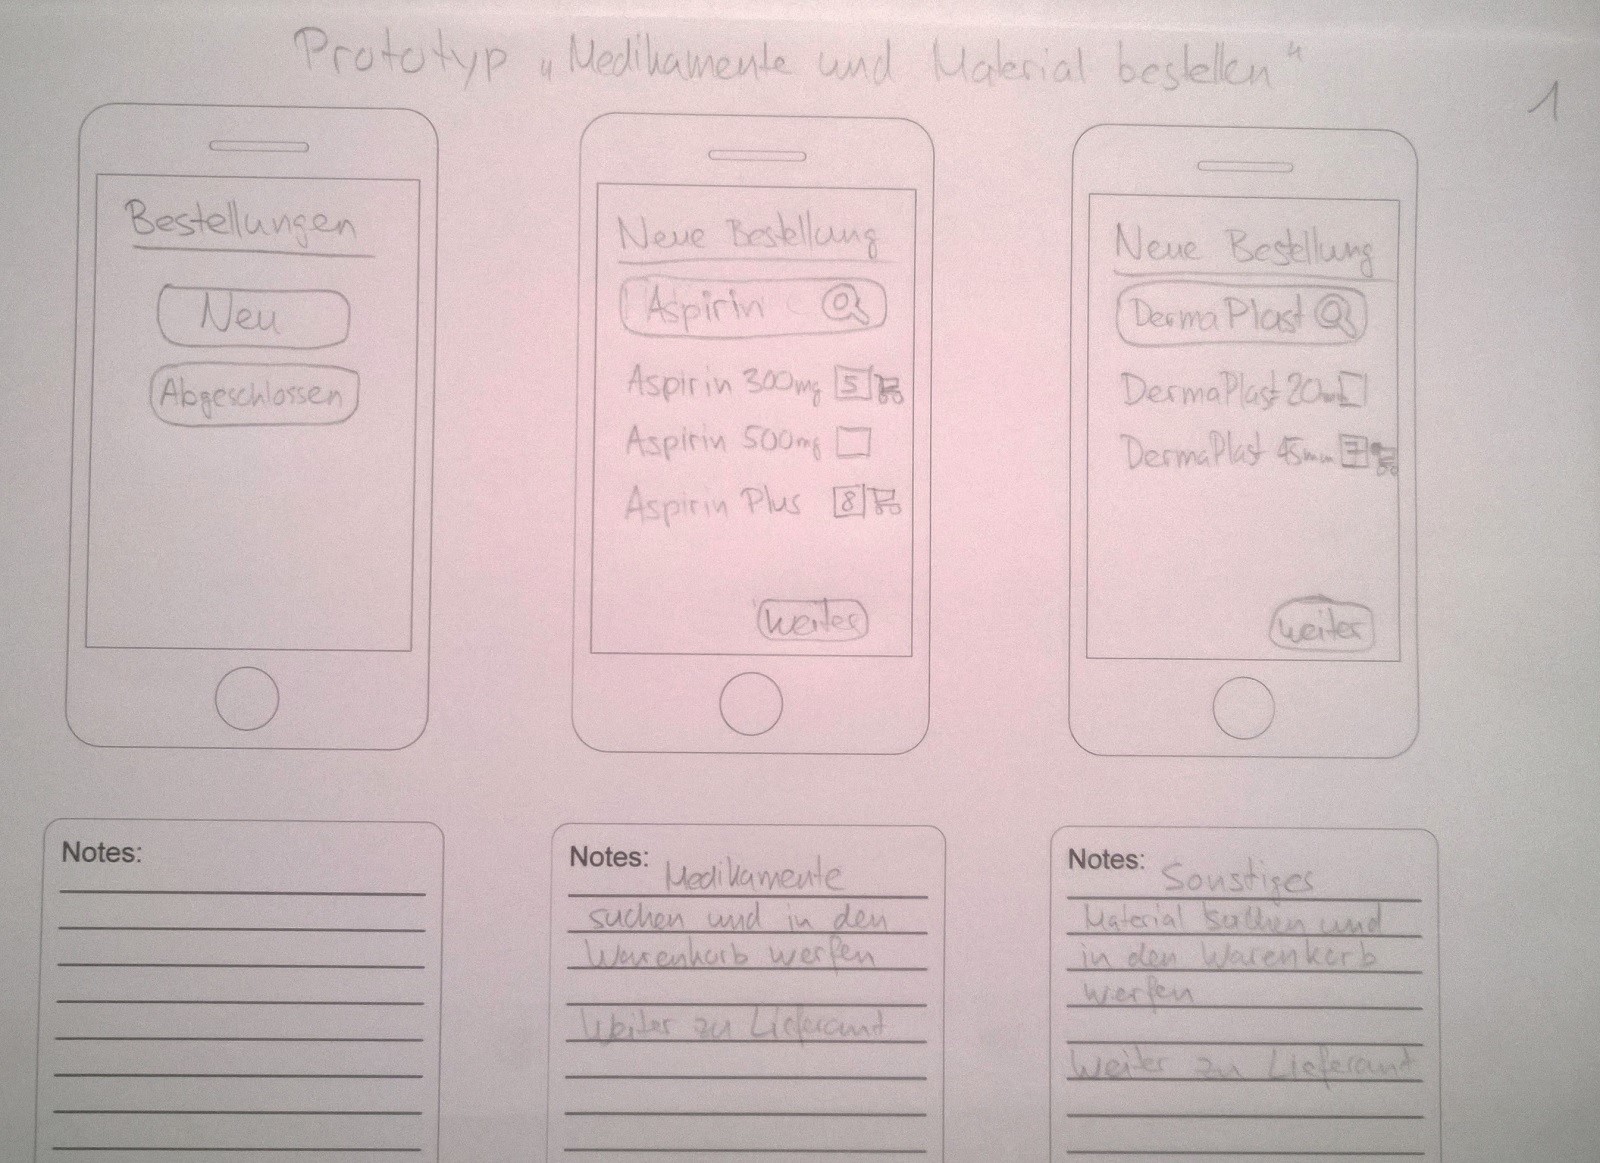 Prototyp „Medikamente und Material bestellen“
1
Bestellungen
Neu
Abgeschlossen
Neue Bestellung
Aspirin
Aspirin 300mg 5
Aspirin 500mg
Aspirin Plus 8
weiter
Neue Bestellung
DermaPlast
DermaPlast 20mm
DermaPlast 45mm 7
weiter
Notes:
Notes: Medikamente
suchen und in den
Warenkorb werfen
Weiter zu Lieferamt
Notes: Sonstiges
Material suchen und
in den Warenkorb
werfen
Weiter zu Lieferamt